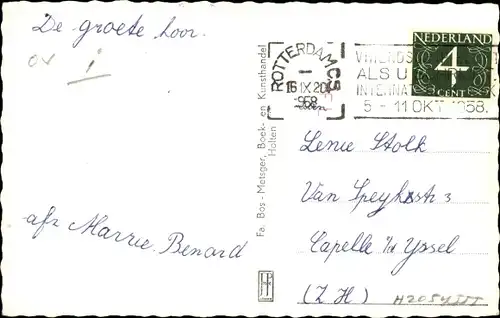 De groete hoor.
afz Marrie Benard
Fa. Bos - Metsger, Boek- en Kunsthandel
Holten
ROTTERDAM CS
16 IX 20
1958
ALS U
INTERNAT
5 - 11 OKT 1958.
NEDERLAND
4
CENT
Lenie Stolk
Van Speykstr 3
Capelle a/d Yssel
(Z.H.)